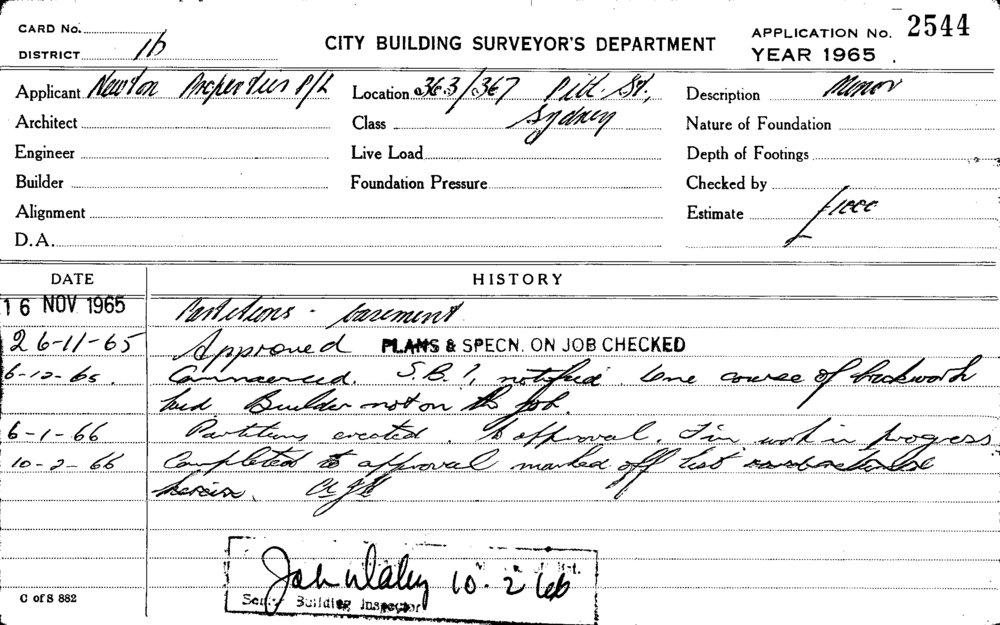 CARD No.
DISTRICT 1b
CITY BUILDING SURVEYOR'S DEPARTMENT
APPLICATION No. 2544
YEAR 1965
Applicant Newton Properties P/L
Location 363/367 Pitt. St., Sydney
Description Minor
Architect
Class
Nature of Foundation
Engineer
Live Load
Depth of Footings
Builder
Foundation Pressure
Checked by
Alignment
Estimate £1000
D.A.
DATE HISTORY
16 NOV 1965 Partitions - basement
26-11-65 Approved PLANS & SPECN. ON JOB CHECKED
6-12-65. Commenced. S.B.?, notified. One course of brickwork
laid. Builder not on the job.
6-1-66 Partitions erected. To approval. Fin work in progress
10-2-66 Completed to approval marked off list
herein.
John Daley 10.2.66
Senior Building Inspector
C of S 882